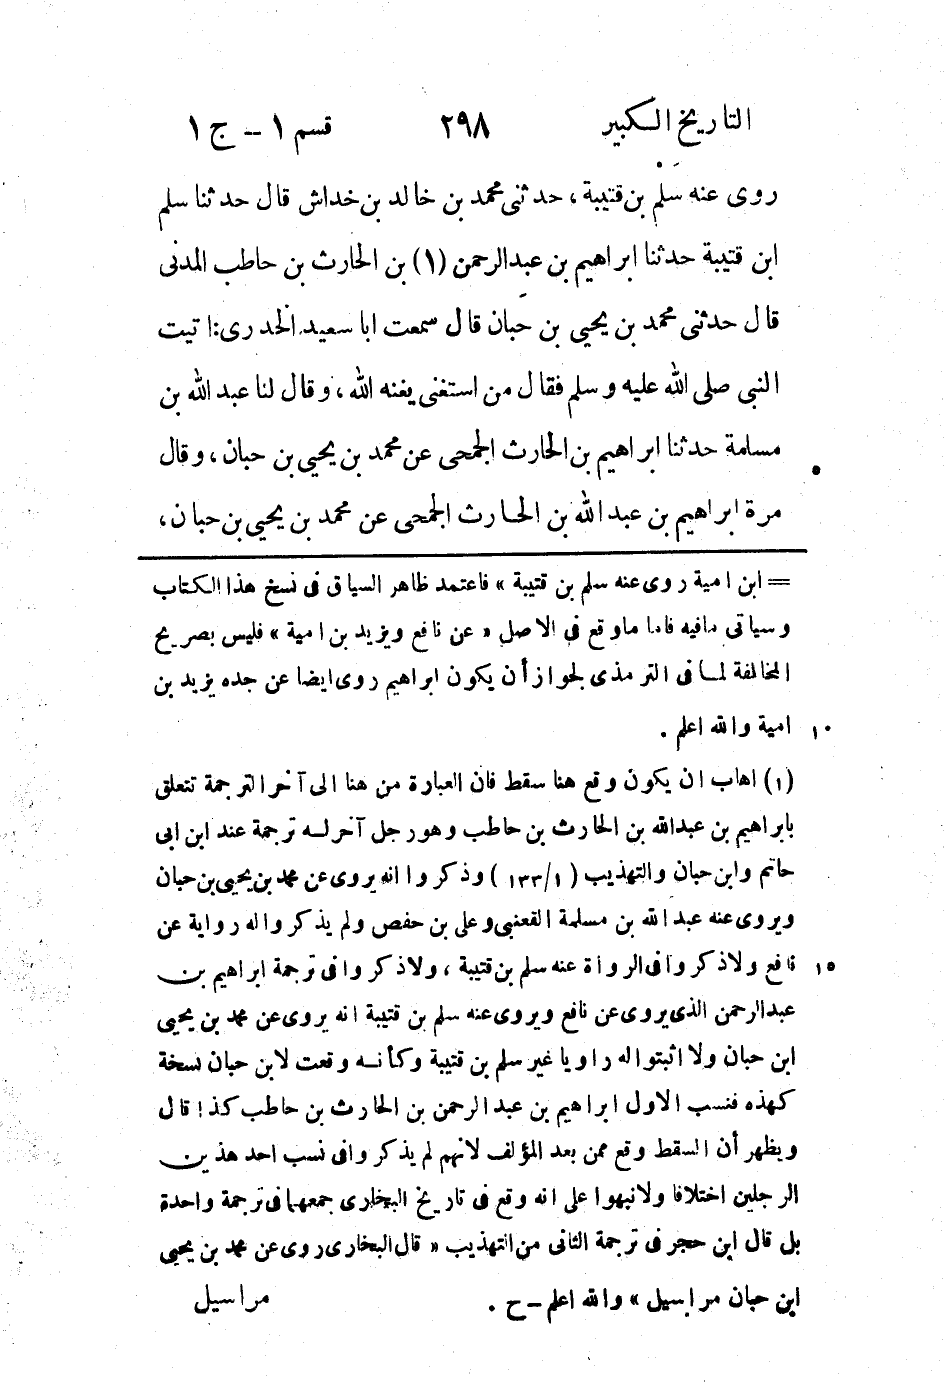 التاريخ الكبير ٢٩٨ قسم ١ – ج ١
روى عنه سَلْم بن قتيبة، حدثنى محمد بن خالد بن خداش قال حدثنا سلم
ابن قتيبة حدثنا ابراهيم بن عبد الرحمن (١) بن الحارث بن حاطب المدنى
قال حدثنى محمد بن يحيى بن حَبان قال سمعت ابا سعيد الخدرى: اتيت
النبى صلى الله عليه وسلم فقال من استغنى يغنه الله، وقال لنا عبد الله بن
مسلمة حدثنا ابراهيم بن الحارث الجمحى عن محمد بن يحيى بن حبان، وقال
مرة ابراهيم بن عبد الله بن الحارث الجمحى عن محمد بن يحيى بن حبان،
= ابن امية روى عنه سلم بن قتيبة » فاعتمد ظاهر السياق فى نسخ هذا الكتاب
وسياتى مافيه فاما ماوقع فى الاصل « عن نافع ويزيد بن امية » فليس بصريح
المخالفة لما فى الترمذى لجواز أن يكون ابراهيم روى ايضا عن جده يزيد بن
امية والله اعلم . ١٠
(١) اهاب ان يكون وقع هنا سقط فان العبارة من هنا الى آخر الترجمة تتعلق
بابراهيم بن عبدالله بن الحارث بن حاطب وهو رجل آخر له ترجمة عند ابن ابى
حاتم وابن حبان والتهذيب (١/ ١٣٣) وذكروا انه يروى عن محمد بن يحيى بن حبان
ويروى عنه عبد الله بن مسلمة القعنبى وعلى بن حفص ولم يذكروا له رواية عن
نافع ولا ذكروا فى الرواة عنه سلم بن قتيبة، ولا ذكروا فى ترجمة ابراهيم بن ١٥
عبدالرحمن الذى يروى عن نافع ويروى عنه سلم بن قتيبة انه يروى عن محمد بن يحيى
ابن حبان ولا اثبتوا له راويا غير سلم بن قتيبة وكأنه وقعت لابن حبان نسخة
كهذه فنسب الاول ابراهيم بن عبد الرحمن بن الحارث بن حاطب كذا قال
ويظهر أن السقط وقع ممن بعد المؤلف لانهم لم يذكروا فى نسب احد هذين
الرجلين اختلافا ولا نبهوا على انه وقع فى تاريخ البخارى جمعهما فى ترجمة واحدة
بل قال ابن حجر فى ترجمة الثانى من التهذيب « قال البخارى روى عن محمد بن يحيى
ابن حبان مراسيل » والله اعلم – ح . مراسيل